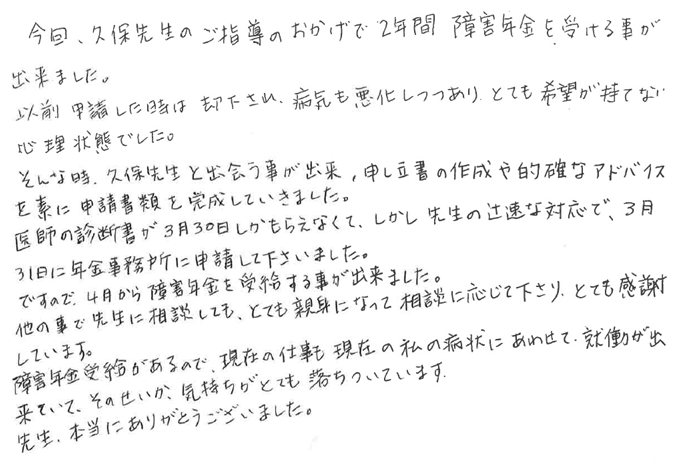 今回、久保先生のご指導のおかげで2年間 障害年金を受ける事が
出来ました。
以前申請した時は却下され、病気も悪化しつつあり、とても希望が持てない
心理状態でした。
そんな時、久保先生と出会う事が出来、申し立書の作成や的確なアドバイス
を素に申請書類を完成していきました。
医師の診断書が3月30日しかもらえなくて、しかし先生の辻速な対応で、3月
31日に年金事務所に申請して下さいました。
ですので、4月から障害年金を受給する事が出来ました。
他の事で先生に相談しても、とても親身になって相談に応じて下さり、とても感謝
しています。
障害年金受給があるので、現在の仕事も現在の私の病状にあわせて、就働が出
来ていて、そのせいか、気持ちがとても落ちついています。
先生、本当にありがとうございました。